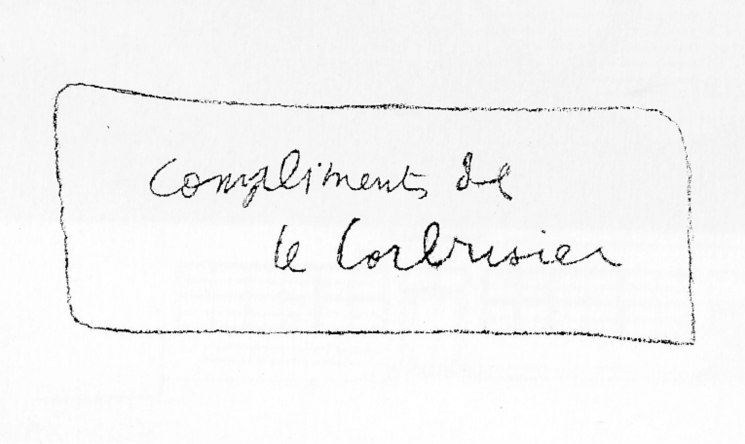 Compliments de
le Corbusier